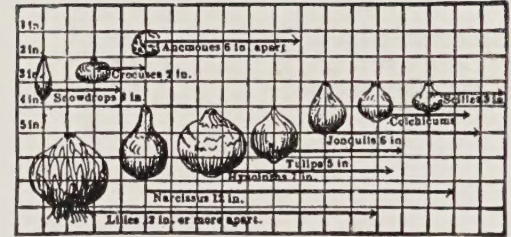 1 in.
2 in.
Anemones 6 in. apart
3 in.
Crocuses 2 in.
Snowdrops in.
Scillas 3 in.
4 in.
Colchicums
5 in.
Jonquils 6 in
Tulips 5 in.
Hyacinths in.
Narcissus 12 in.
Lilies 12 in. or more apart.